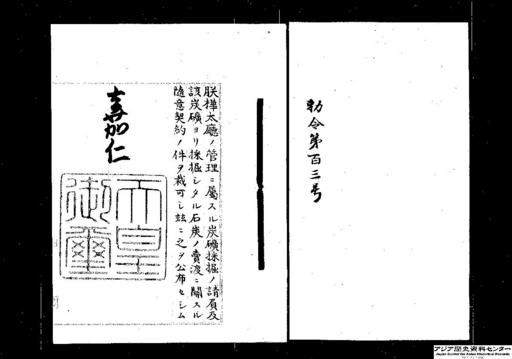 勅令第百三号
朕樺太廳ノ管理ニ屬スル炭礦採掘ノ請負及
該炭礦ヨリ採掘シタル石炭ノ賣渡ニ關スル
隨意契約ノ件ヲ裁可シ玆ニ之ヲ公布セシム
嘉仁
天皇
御璽
アジア歴史資料センター
Japan Center for Asian Historical Records